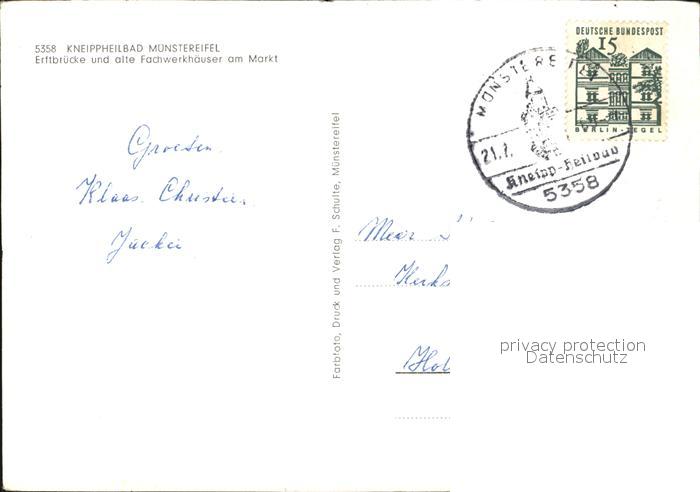 5358 KNEIPPHEILBAD MÜNSTEREIFEL
Erftbrücke und alte Fachwerkhäuser am Markt
Groeten
Klaas Christien
Farbfoto, Druck und Verlag F. Schulte, Münstereifel
DEUTSCHE BUNDESPOST
15
BERLIN-TEGEL
21.7.
Kneipp-Heilbad
5358
Hol
privacy protection
Datenschutz